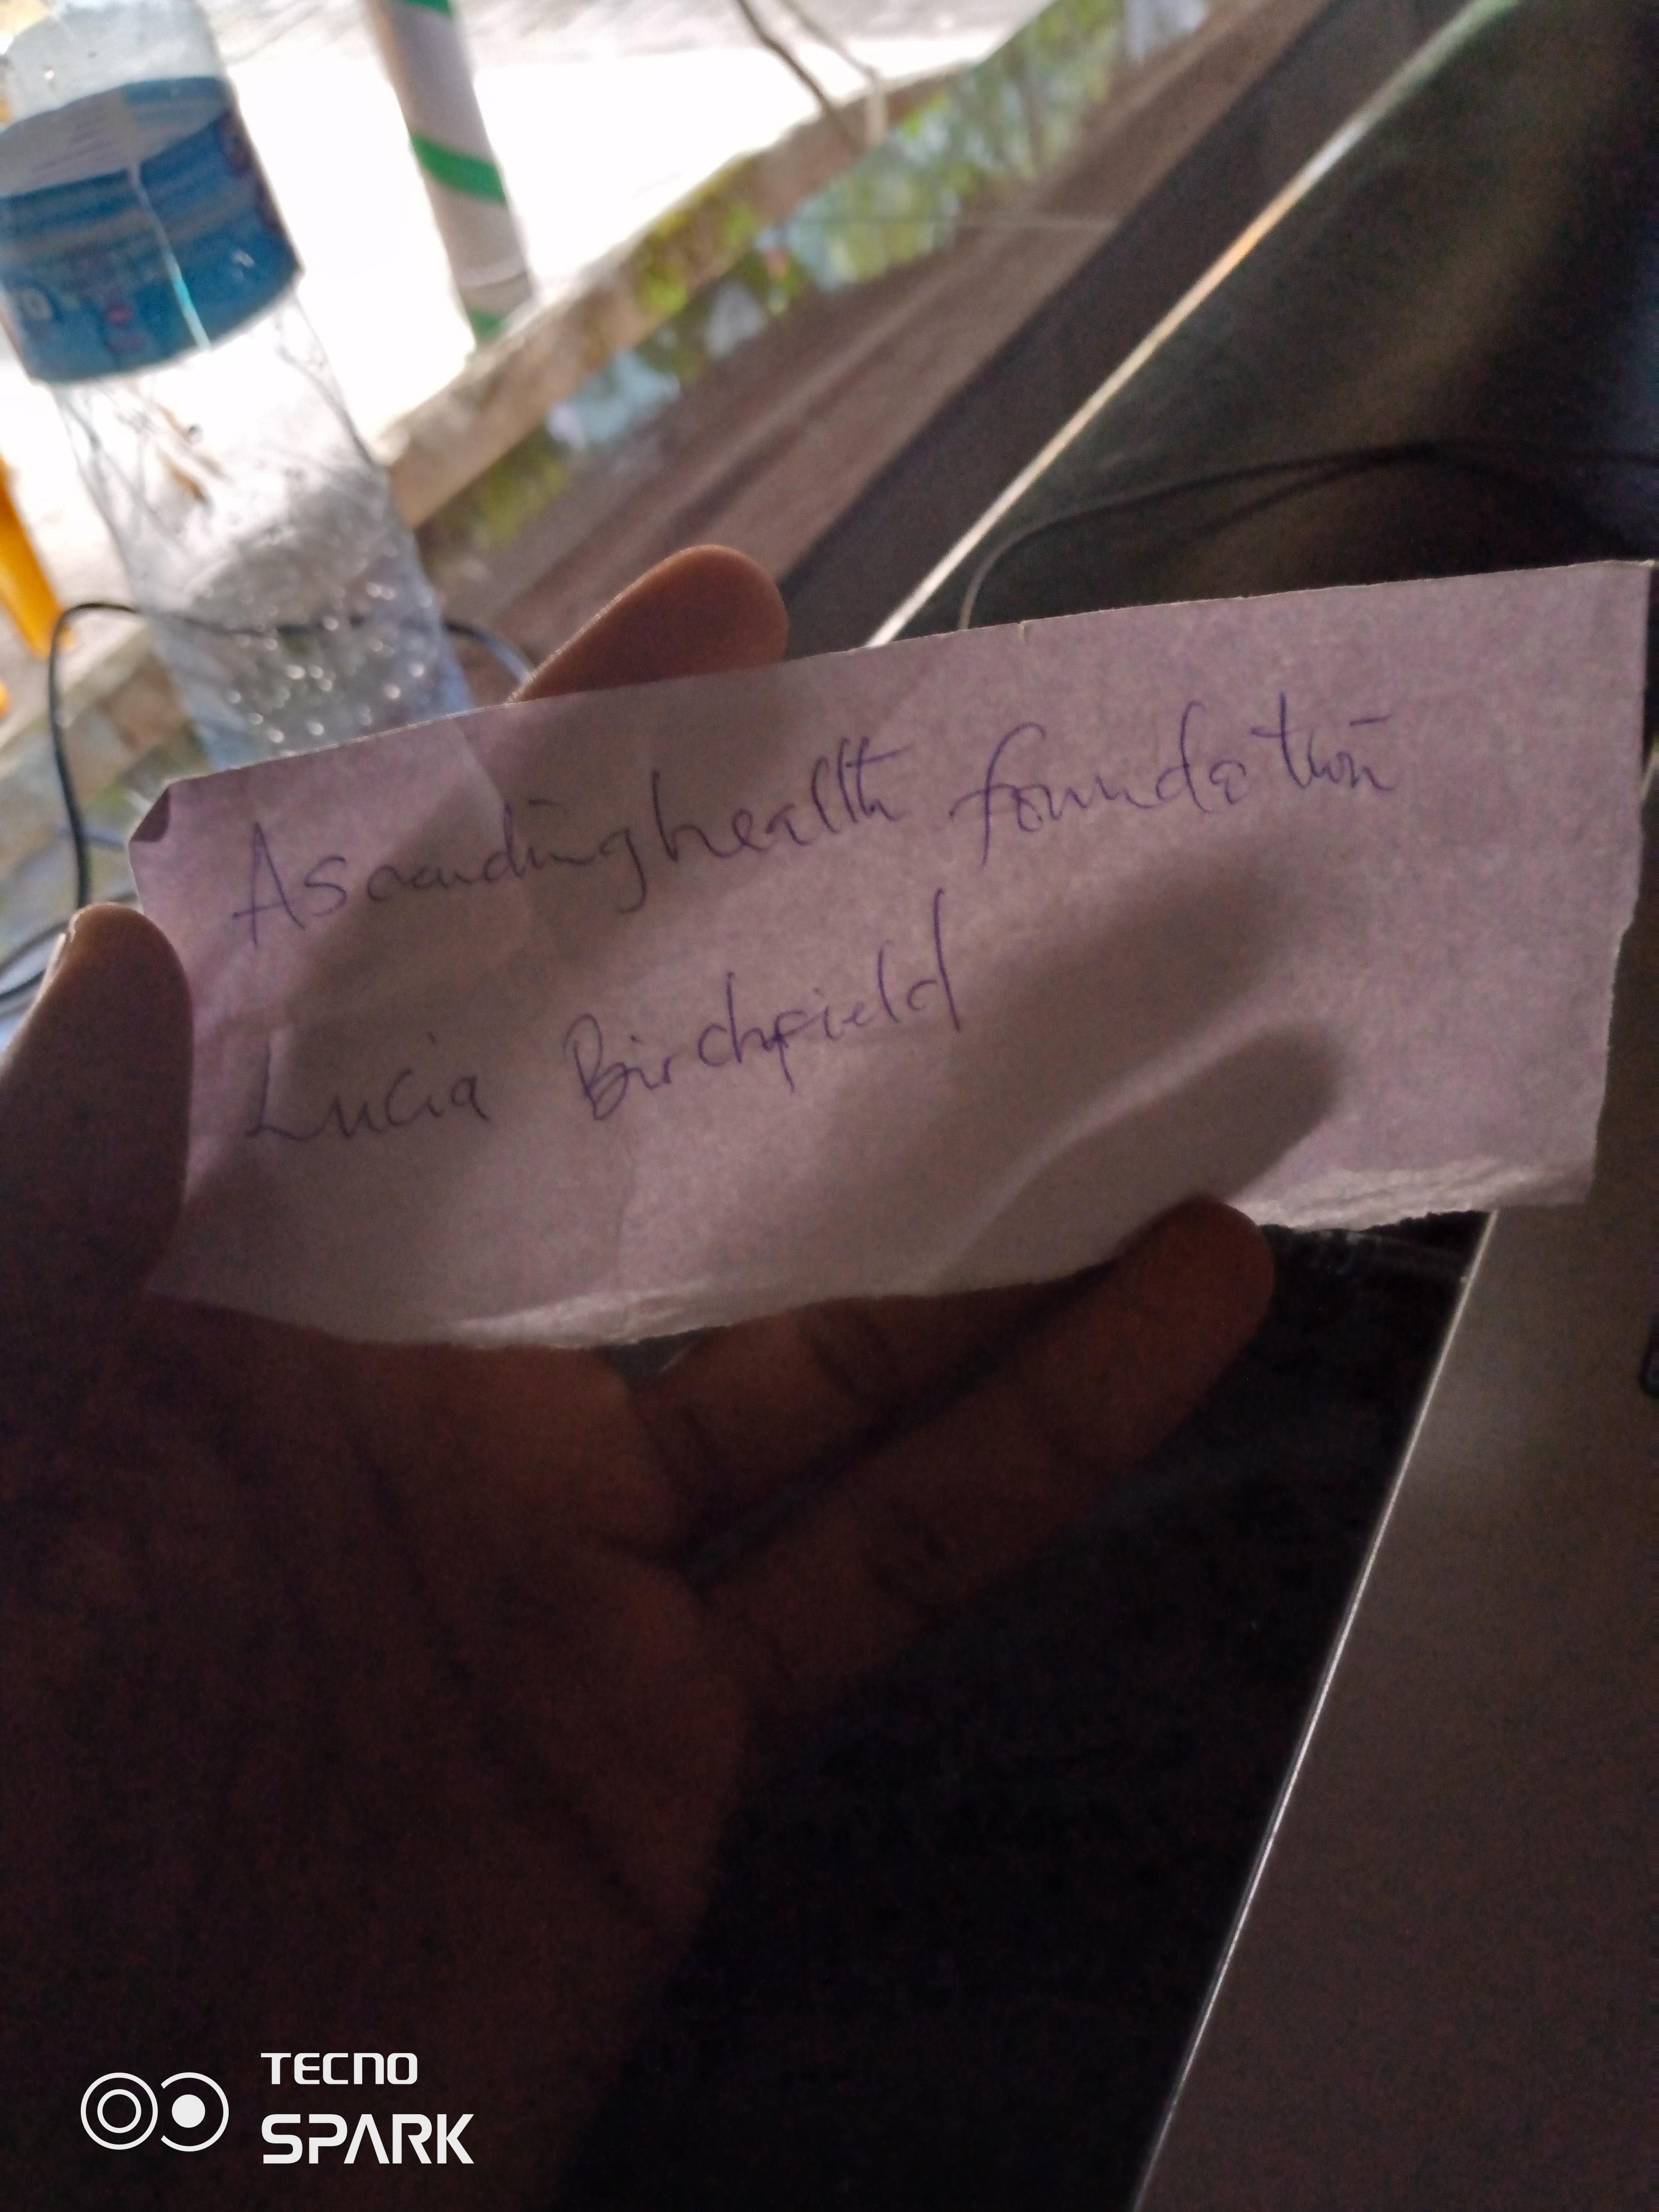 Ascendinghealth foundation
Lucia Birchfield
TECNO
SPARK